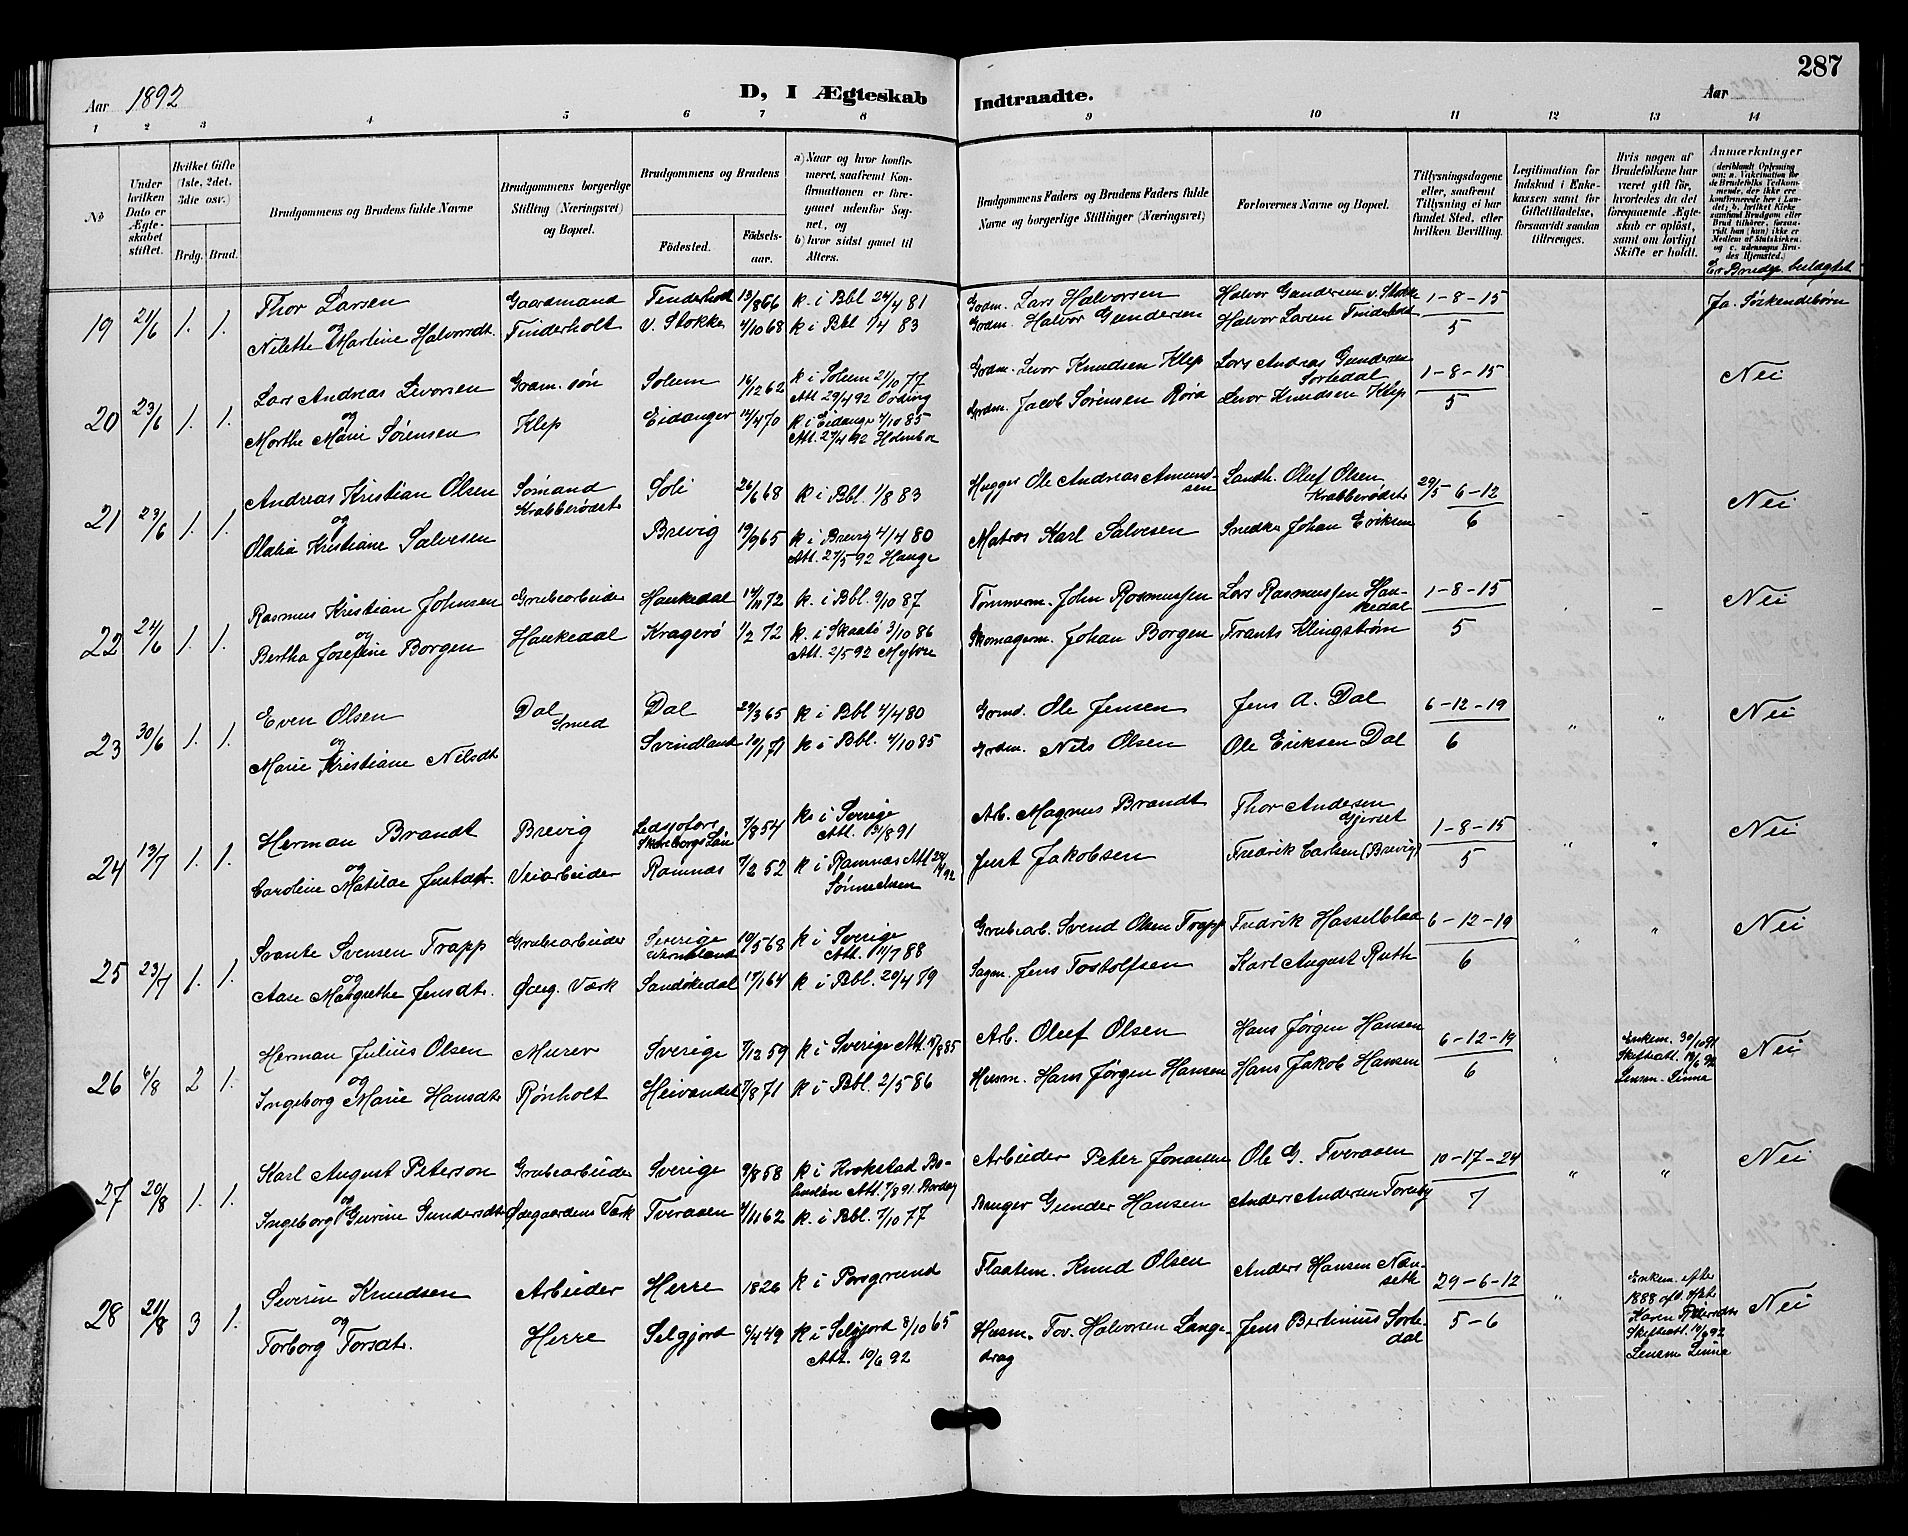 287
Aar 1892
D, I Ægteskab Indtraadte.
Aar
1 2 3 4 5 6 7 8 9 10 11 12 13 14
No
Under hvilken Dato er Ægteskabet stiftet.
Hvilket Gifte (1ste, 2det, 3die osv.)
Brdg. Brud.
Brudgommens og Brudens fulde Navne
Brudgommens borgerlige Stilling (Næringsvei) og Bopæl.
Brudgommens og Brudens
Fødested.
Fødselsaar.
a) Naar og hvor konfirmeret, saafremt Konfirmationen er foregaaet udenfor Sognet, og
b) hvor sidst gaaet til Alters.
Brudgommens Faders og Brudens Faders fulde Navne og borgerlige Stillinger (Næringsvei)
Forlovernes Navne og Bopæl.
Tillysningsdagene eller, saafremt Tillysning ei har fundet Sted, efter hvilken Bevilling.
Legitimation for Indskud i Enkekassen samt for Giftetilladelse, forsaavidt saadan tiltrænges.
Hvis nogen af Brudefolkene har været gift før, hvorledes da det foregaaende Ægteskab er opløst, samt om lovligt Skifte er holdt.
Anmærkninger
(deriblandt Oplysning om: a. Vakcination for de Brudefolks Vedkommende, der ikke ere konfirmerede her i Landet; b. hvilket Kirkesamfund Brudgom eller Brud tilhører, forsaavidt han (hun) ikke er Medlem af Statskirken, og c. udensogns Brudes Hjemsted.)
Er Brudp. beslægtet
19 21/6 1. 1. Thor Larsen Gaardmand Finderholt 13/8 66 k. i Bbl 24/4 81 Gaardm. Lars Halvorsen Halvor Gundersen v. Stokke 1-8-15 Ja. Söskendebörn
og
Nilette Martine Halvorsdt. Finderholt V. Stokke 4/10 68 k i Bbl 1/4 83 Grdm. Halvor Gundersen Halvor Larsen Finderholt 5
20 23/6 1. 1. Lars Andreas Levorsen Grdm. søn Solum 16/12 62 k i Solum 21/10 77 Att. 29/4 92 Ording Grdm. Levor Knudsen Klep Lars Andreas Gundersen Sortedal 1-8-15 Nei
og
Marthe Marie Sørensen Klep Eidanger 14/4 70 k i Eidanger 4/10 85 Att. 27/4 92 Holmboe Grdm. Jacob Sørensen Røra Levor Knudsen Klep 5
21 23/6 1. 1. Andreas Kristian Olsen Sømand Krabberødet Soli 26/6 68 k i Bbl. 1/8 83 Hugger Ole Andreas Amundsen Landh. Oluf Olsen Krabberødet 29/5 6-12 Nei
og
Olalia Kristiane Salvesen Brevig 19/9 65 k i Brevig 4/4 80 Att. 27/5 92 Hauge Matros Karl Salvesen Snedker Johan Eriksen 6
22 24/6 1. 1. Rasmus Kristian Johnsen Grubearbeider Haukedal 14/11 72 k. i Bbl. 9/10 87 Tømmerm. John Rasmussen Lars Rasmussen Haukedal 1-8-15 Nei
og
Bertha Josefine Borgen Haukedal Kragerö 1/2 72 k. i Skaatö 3/10 86 Att. 2/5 92 Myhre Skomagerm. Johan Borgen Frants Klingstrøm 5
23 30/6 1. 1. Even Olsen Dal Smed Dal 29/3 65 k i Bbl 4/4 80 Grmd. Ole Jensen Jens A. Dal 6-12-19 Nei
og
Marie Kristiane Nilsdt. Svindland 10/1 71 k i Bbl. 4/10 85 Grdm. Nils Olsen Ole Eriksen Dal 6
24 13/7 1. 1. Herman Brandt Brevig Skaraborgs Län 7/8 54 k. i Sverige Att. 31/8 91 Arb. Magnus Brandt Thor Andersen Gjerset 1-8-15 Nei
og
Caroline Matilde Justsdt. Veiarbeider Ramnæs 7/2 52 k i Ramnæs Att. 92 Just Jakobsen Fredrik Carlsen (Brevig) 5
25 23/7 1. 1. Svante Svensen Trapp Grubearbeider Sverige Wermland 19/5 68 k i Sverige Att. 14/7 88 Grubearb. Svend Olsen Trapp Fredrik Hasselblad 6-12-19 Nei
og
Aase Margrethe Jensdt. Ødeg. Værk Sandökedal 17/1 64 k i Bbl. 20/4 79 Sagm. Jens Tostolfsen Karl August Ruth 6
26 6/8 2 1. Herman Julius Olsen Murer Sverige 7/12 59 k i Sverige Att. 11/8 85 Arb. Oluf Olsen Hans Jørgen Hansen 6-12-19 Enkem. 30/10 91 Skifteatt. 19/6 92 Lensm. Linne Nei
og
Ingeborg Marie Hansdt. Rønholt Heivandet 7/8 71 k i Bbl. 2/5 86 Husm. Hans Jørgen Hansen Hans Jakob Hansen 6
27 20/8 1. 1. Karl August Peterson Grubearbeider Sverige 9/8 58 k i Krokstad Bohuslän Att. 7/8 91 Arbeider Peter Jonassen Ole G. Tveraaen 10-17-24 Nei
og
Ingeborg Gurine Gundersdt. Ødegaardens Værk Tveraaen 4/11 62 k. i Bbl. 7/10 77 Bruger Gunder Hansen Anders Andersen 7
28 20/8 3 1. Severin Knudsen Arbeider Herre 1826 k i Porsgrund Flaatem. Knud Olsen Anders Hansen Nænseth 29-6-12 Enkem. efter 1888 afd. Hst. Karen Skifteatt. 14/6 92 Lensm Linne Nei
og
Torborg Torsdt. Herre Selgjord 6/4 49 k i Selgjord 8/10 65 Att. 19/6 92 Husm. Tov. Halvorsen Langedrag Jens Bertinius Sortedal 5-6